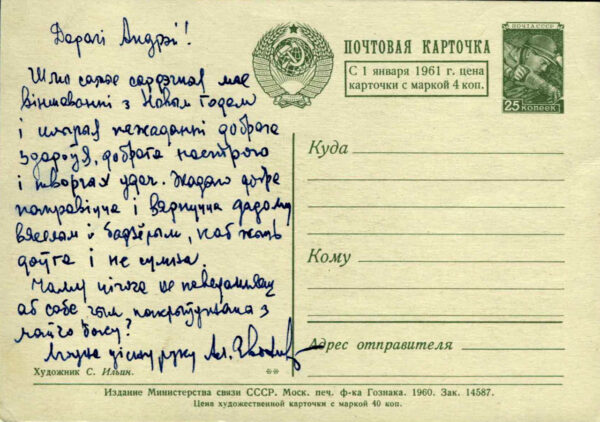 Дарагі Андрэй!
Шлю самае сардэчнае мае
віншаванні з Новым годам
і шчырыя пажаданні добрага
здароўя, добрага настрою
і творчых удач. Жадаю добра
паправіцца і вярнуцца дадому
вясёлым і бадзёрым, каб жыць
доўга і не сумна.
Чаму нічога не паведамляеш
аб сабе
майго боку?
Моцна цісну руку Ал.
ПОЧТОВАЯ КАРТОЧКА
С 1 января 1961 г. цена
карточки с маркой 4 коп.
ПОЧТА СССР
25 КОПЕЕК
Куда
Кому
Адрес отправителя
Художник С. Ильин.
**
Издание Министерства связи СССР. Моск. печ. ф-ка Гознака. 1960. Зак. 14587.
Цена художественной карточки с маркой 40 коп.